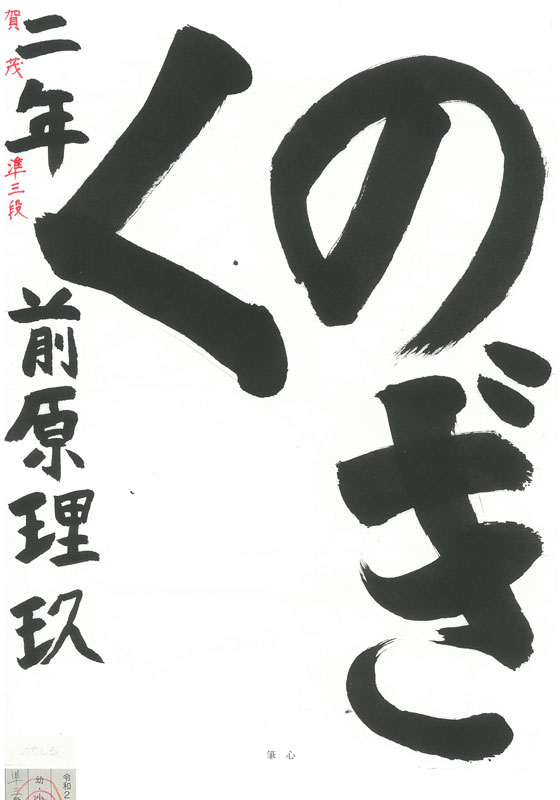 のぎ
く
二年 前原理玖
賀茂 準三段
心筆
のりしろ
令和2
幼・小
準